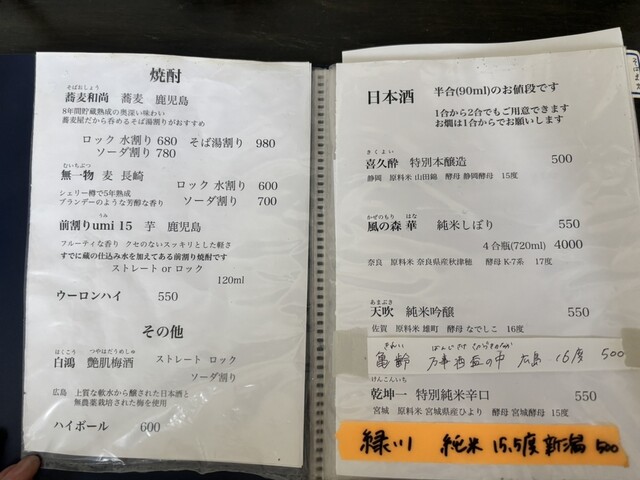 焼酎
そばおしょう
蕎麦和尚 蕎麦 鹿児島
8年間貯蔵熟成の奥深い味わい
蕎麦屋だから呑めるそば湯割りがおすすめ
ロック 水割り 680 そば湯割り 980
ソーダ割り 780
むいちぶつ
無一物 麦 長崎
ロック 水割り 600
シェリー樽で5年熟成
ブランデーのような芳醇な香り ソーダ割り 700
うみ
前割りumi 15 芋 鹿児島
フルーティな香り クセのないスッキリとした軽さ
すでに蔵の仕込み水を加えてある前割り焼酎です
ストレート or ロック
120ml
ウーロンハイ 550
その他
はくこう つやはだうめしゅ
白鴻 艶肌梅酒 ストレート ロック
ソーダ割り
広島 上質な軟水から醸された日本酒と
無農薬栽培された梅を使用
ハイボール 600
日本酒 半合(90ml)のお値段です
1合から2合でもご用意できます
お燗は1合からでお願いします
きくよい
喜久酔 特別本醸造 500
静岡 原料米 山田錦 酵母 静岡酵母 15度
かぜのもり はな
風の森 華 純米しぼり 550
4合瓶(720ml) 4000
奈良 原料米 奈良県産秋津穂 酵母 K-7系 17度
あまぶき
天吹 純米吟醸 550
佐賀 原料米 雄町 酵母 なでしこ 16度
きれい ばんじさけ
亀齢 万事酒盃の中 広島 16度 500
けんこんいち
乾坤一 特別純米辛口 550
宮城 原料米 宮城県産ひより 酵母 宮城酵母 15度
緑川 純米 15.5度 新潟 500